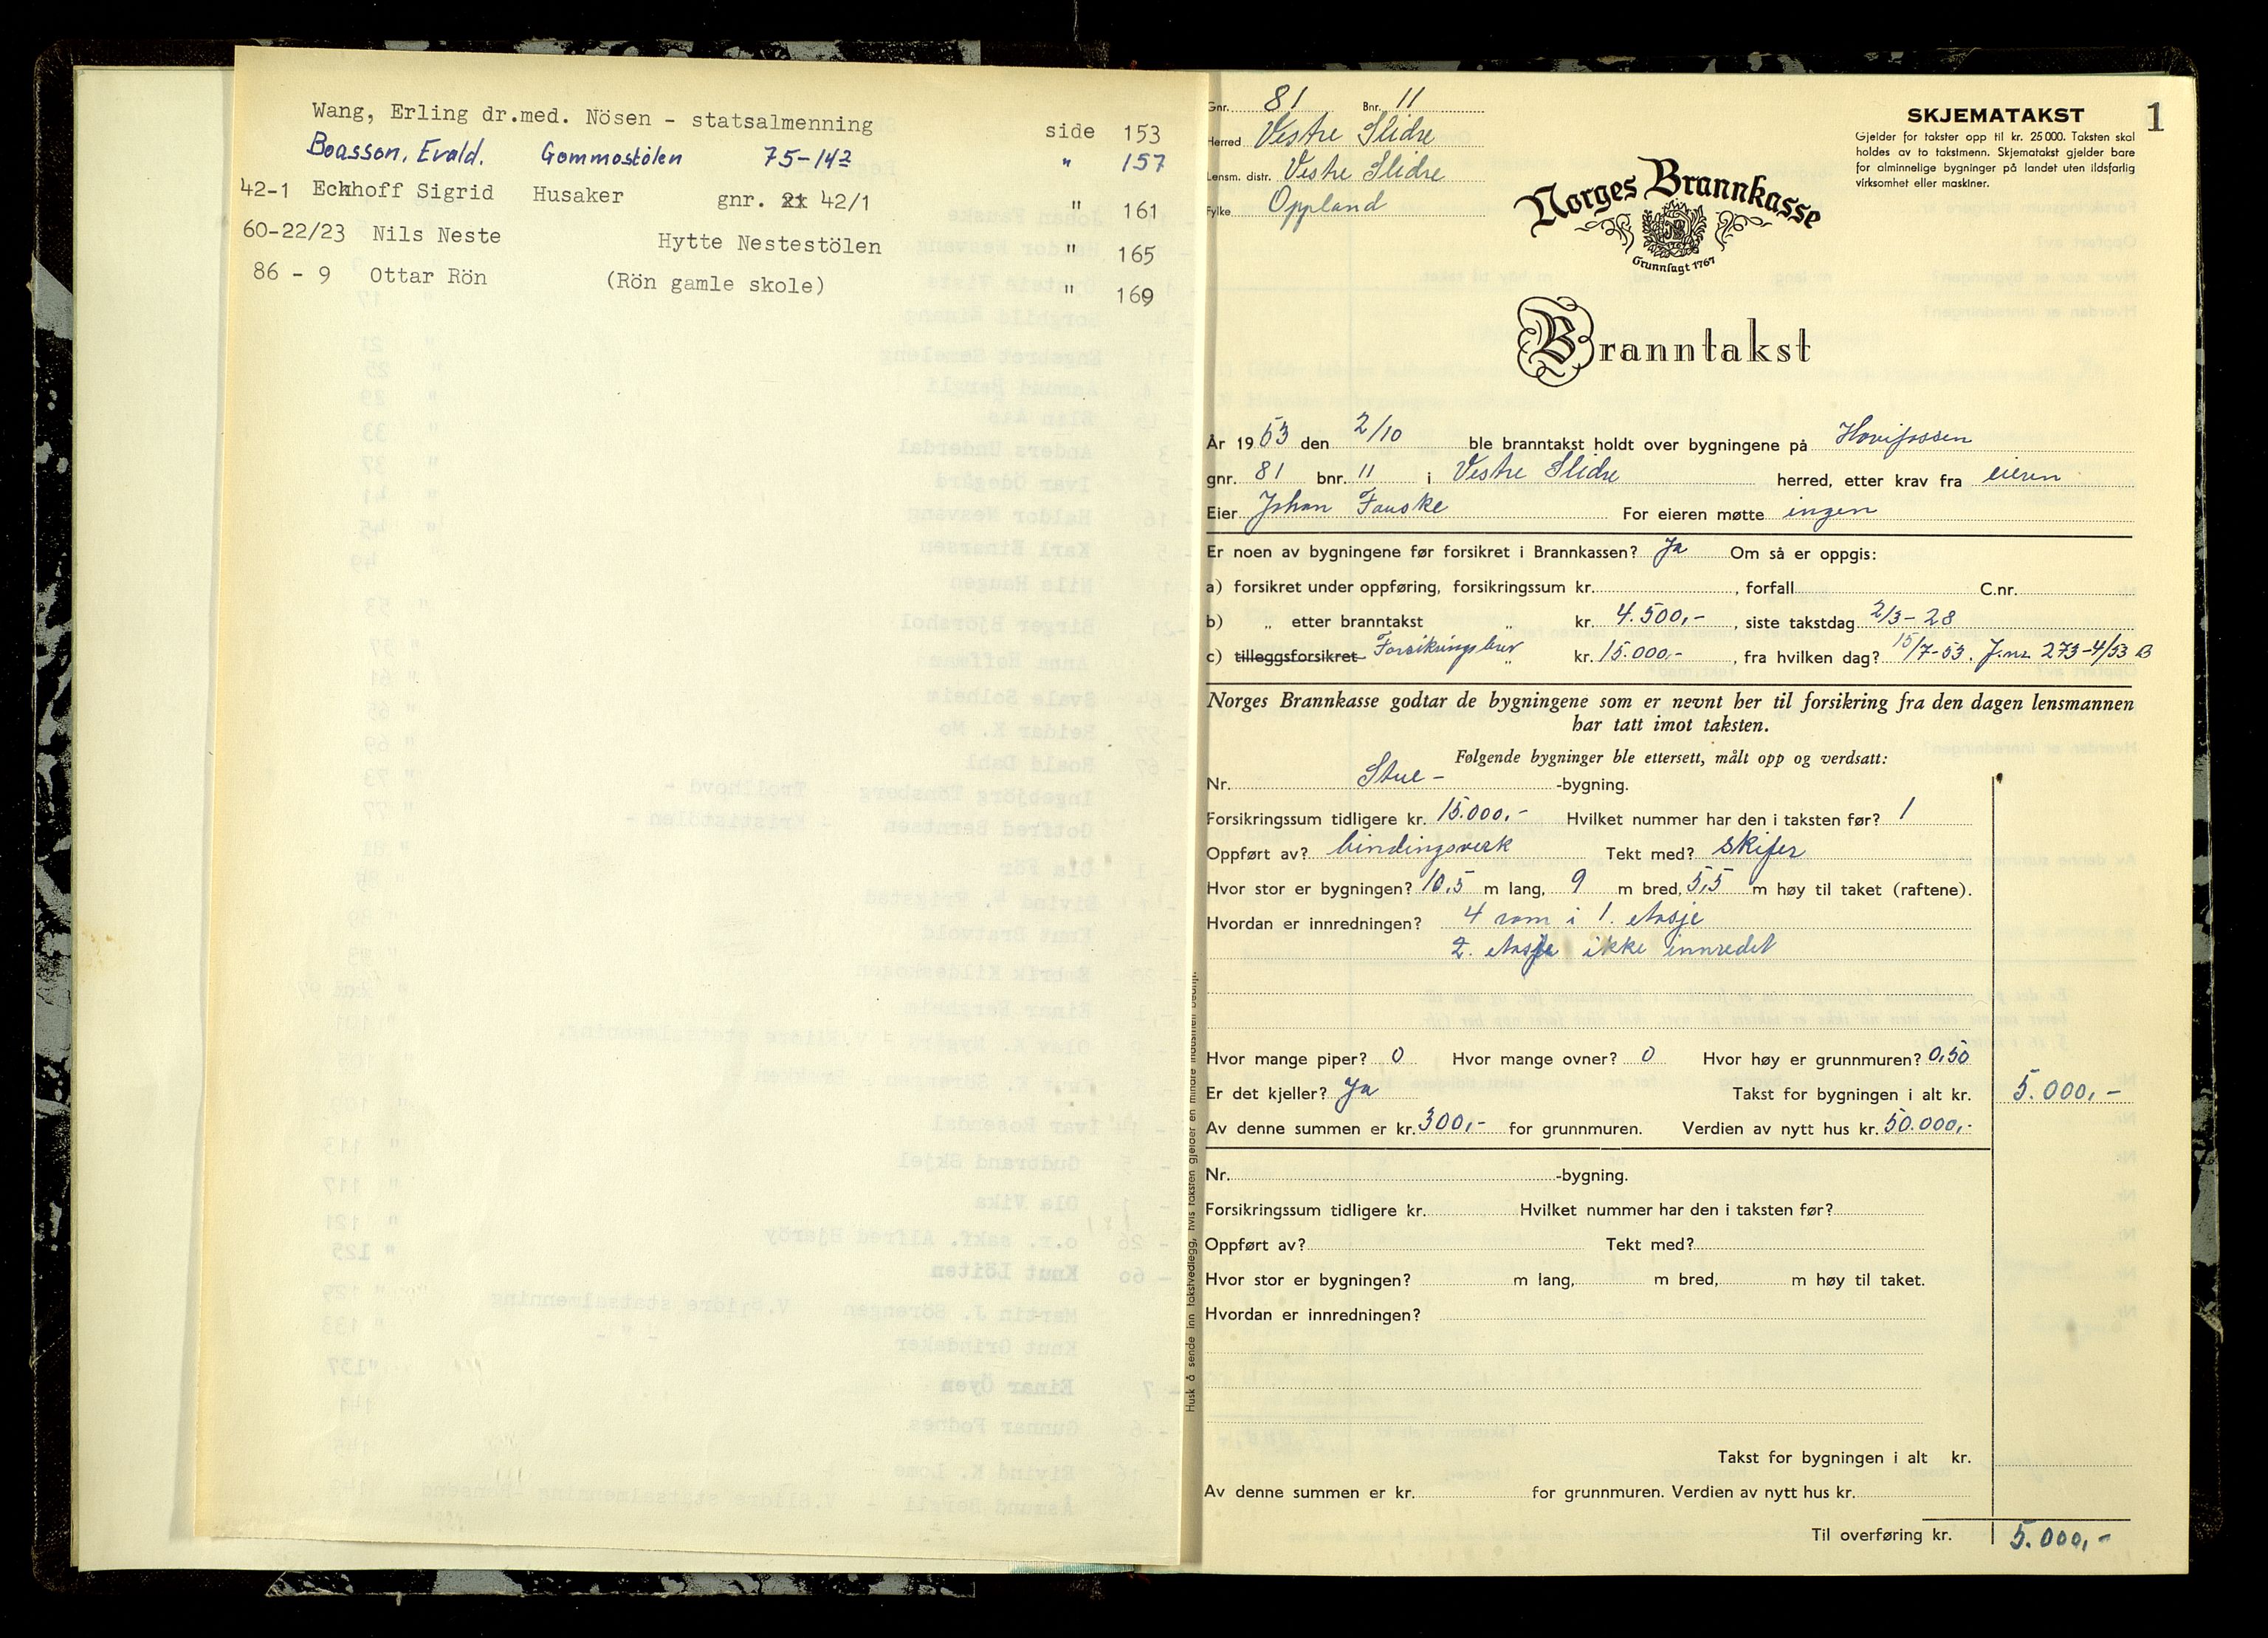 Wang, Erling dr.med. Nösen - statsalmenning side 153
Boasson, Evald. Gommostölen 75-142 " 157
42-1 Eckhoff Sigrid Husaker gnr. 21 42/1 " 161
60-22/23 Nils Neste Hytte Nestestölen " 165
86 - 9 Ottar Rön (Rön gamle skole) " 169
Gnr. 81 Bnr. 11
Herred Vestre Slidre
Lensm. distr. Vestre Slidre
Fylke Oppland
SKJEMATAKST 1
Gjelder for takster opp til kr. 25 000. Taksten skal
holdes av to takstmenn. Skjematakst gjelder bare
for alminnelige bygninger på landet uten ildsfarlig
virksomhet eller maskiner.
Norges Brannkasse
Grunnlagt 1767
Branntakst
År 1953 den 2/10 ble branntakst holdt over bygningene på Hovifossen
gnr. 81 bnr. 11 i Vestre Slidre herred, etter krav fra eieren
Eier Johan Fauske For eieren møtte ingen
Er noen av bygningene før forsikret i Brannkassen? Ja Om så er oppgis:
a) forsikret under oppføring, forsikringssum kr. , forfall C.nr.
b) „ etter branntakst „ kr. 4.500,- , siste takstdag 2/3-28
c) tilleggsforsikret Forsikringsbrev „ kr. 15.000,- , fra hvilken dag? 15/7-53. J.nr. 273-4/53 B
Norges Brannkasse godtar de bygningene som er nevnt her til forsikring fra den dagen lensmannen
har tatt imot taksten.
Følgende bygninger ble ettersett, målt opp og verdsatt:
Nr. Stue - -bygning.
Forsikringssum tidligere kr. 15.000,- Hvilket nummer har den i taksten før? 1
Oppført av? bindingsverk Tekt med? skifer
Hvor stor er bygningen? 10,5 m lang, 9 m bred, 5,5 m høy til taket (raftene).
Hvordan er innredningen? 4 rom i 1. etasje
2. etasje ikke innredet
Hvor mange piper? 0 Hvor mange ovner? 0 Hvor høy er grunnmuren? 0,50
Er det kjeller? Ja Takst for bygningen i alt kr. 5.000,-
Av denne summen er kr. 300,- for grunnmuren. Verdien av nytt hus kr. 50.000,-
Nr. -bygning.
Forsikringssum tidligere kr. Hvilket nummer har den i taksten før?
Oppført av? Tekt med?
Hvor stor er bygningen? m lang, m bred, m høy til taket.
Hvordan er innredningen?
Takst for bygningen i alt kr.
Av denne summen er kr. for grunnmuren. Verdien av nytt hus kr.
Til overføring kr. 5.000,-
Husk å sende inn takstvedlegg, hvis taksten gjelder en mindre industriell bedrift.